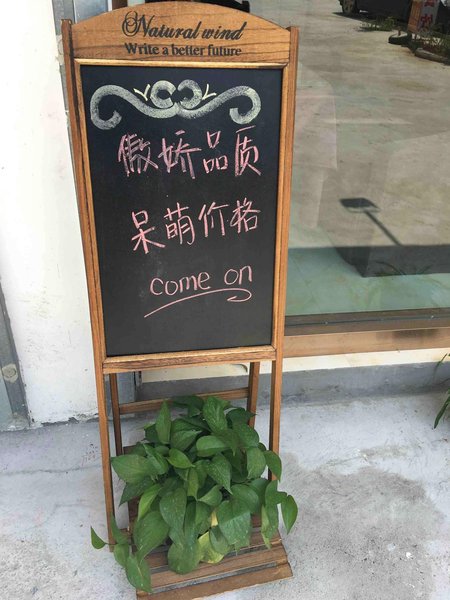 Natural wind
Write a better future
傲娇品质
呆萌价格
come on